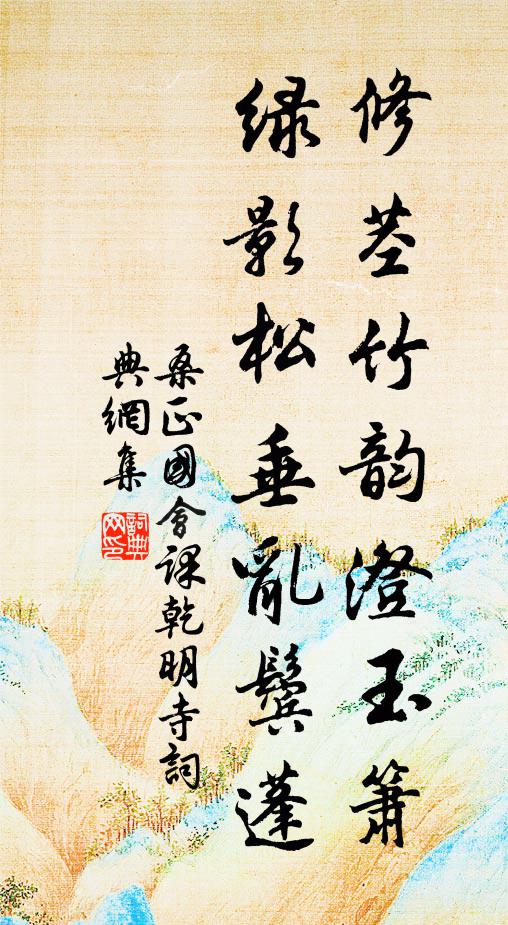 修茎竹韵澄玉箫
绿影松垂乱鬓蓬
桑正國會课乾明寺詞
典網集
詞典网印